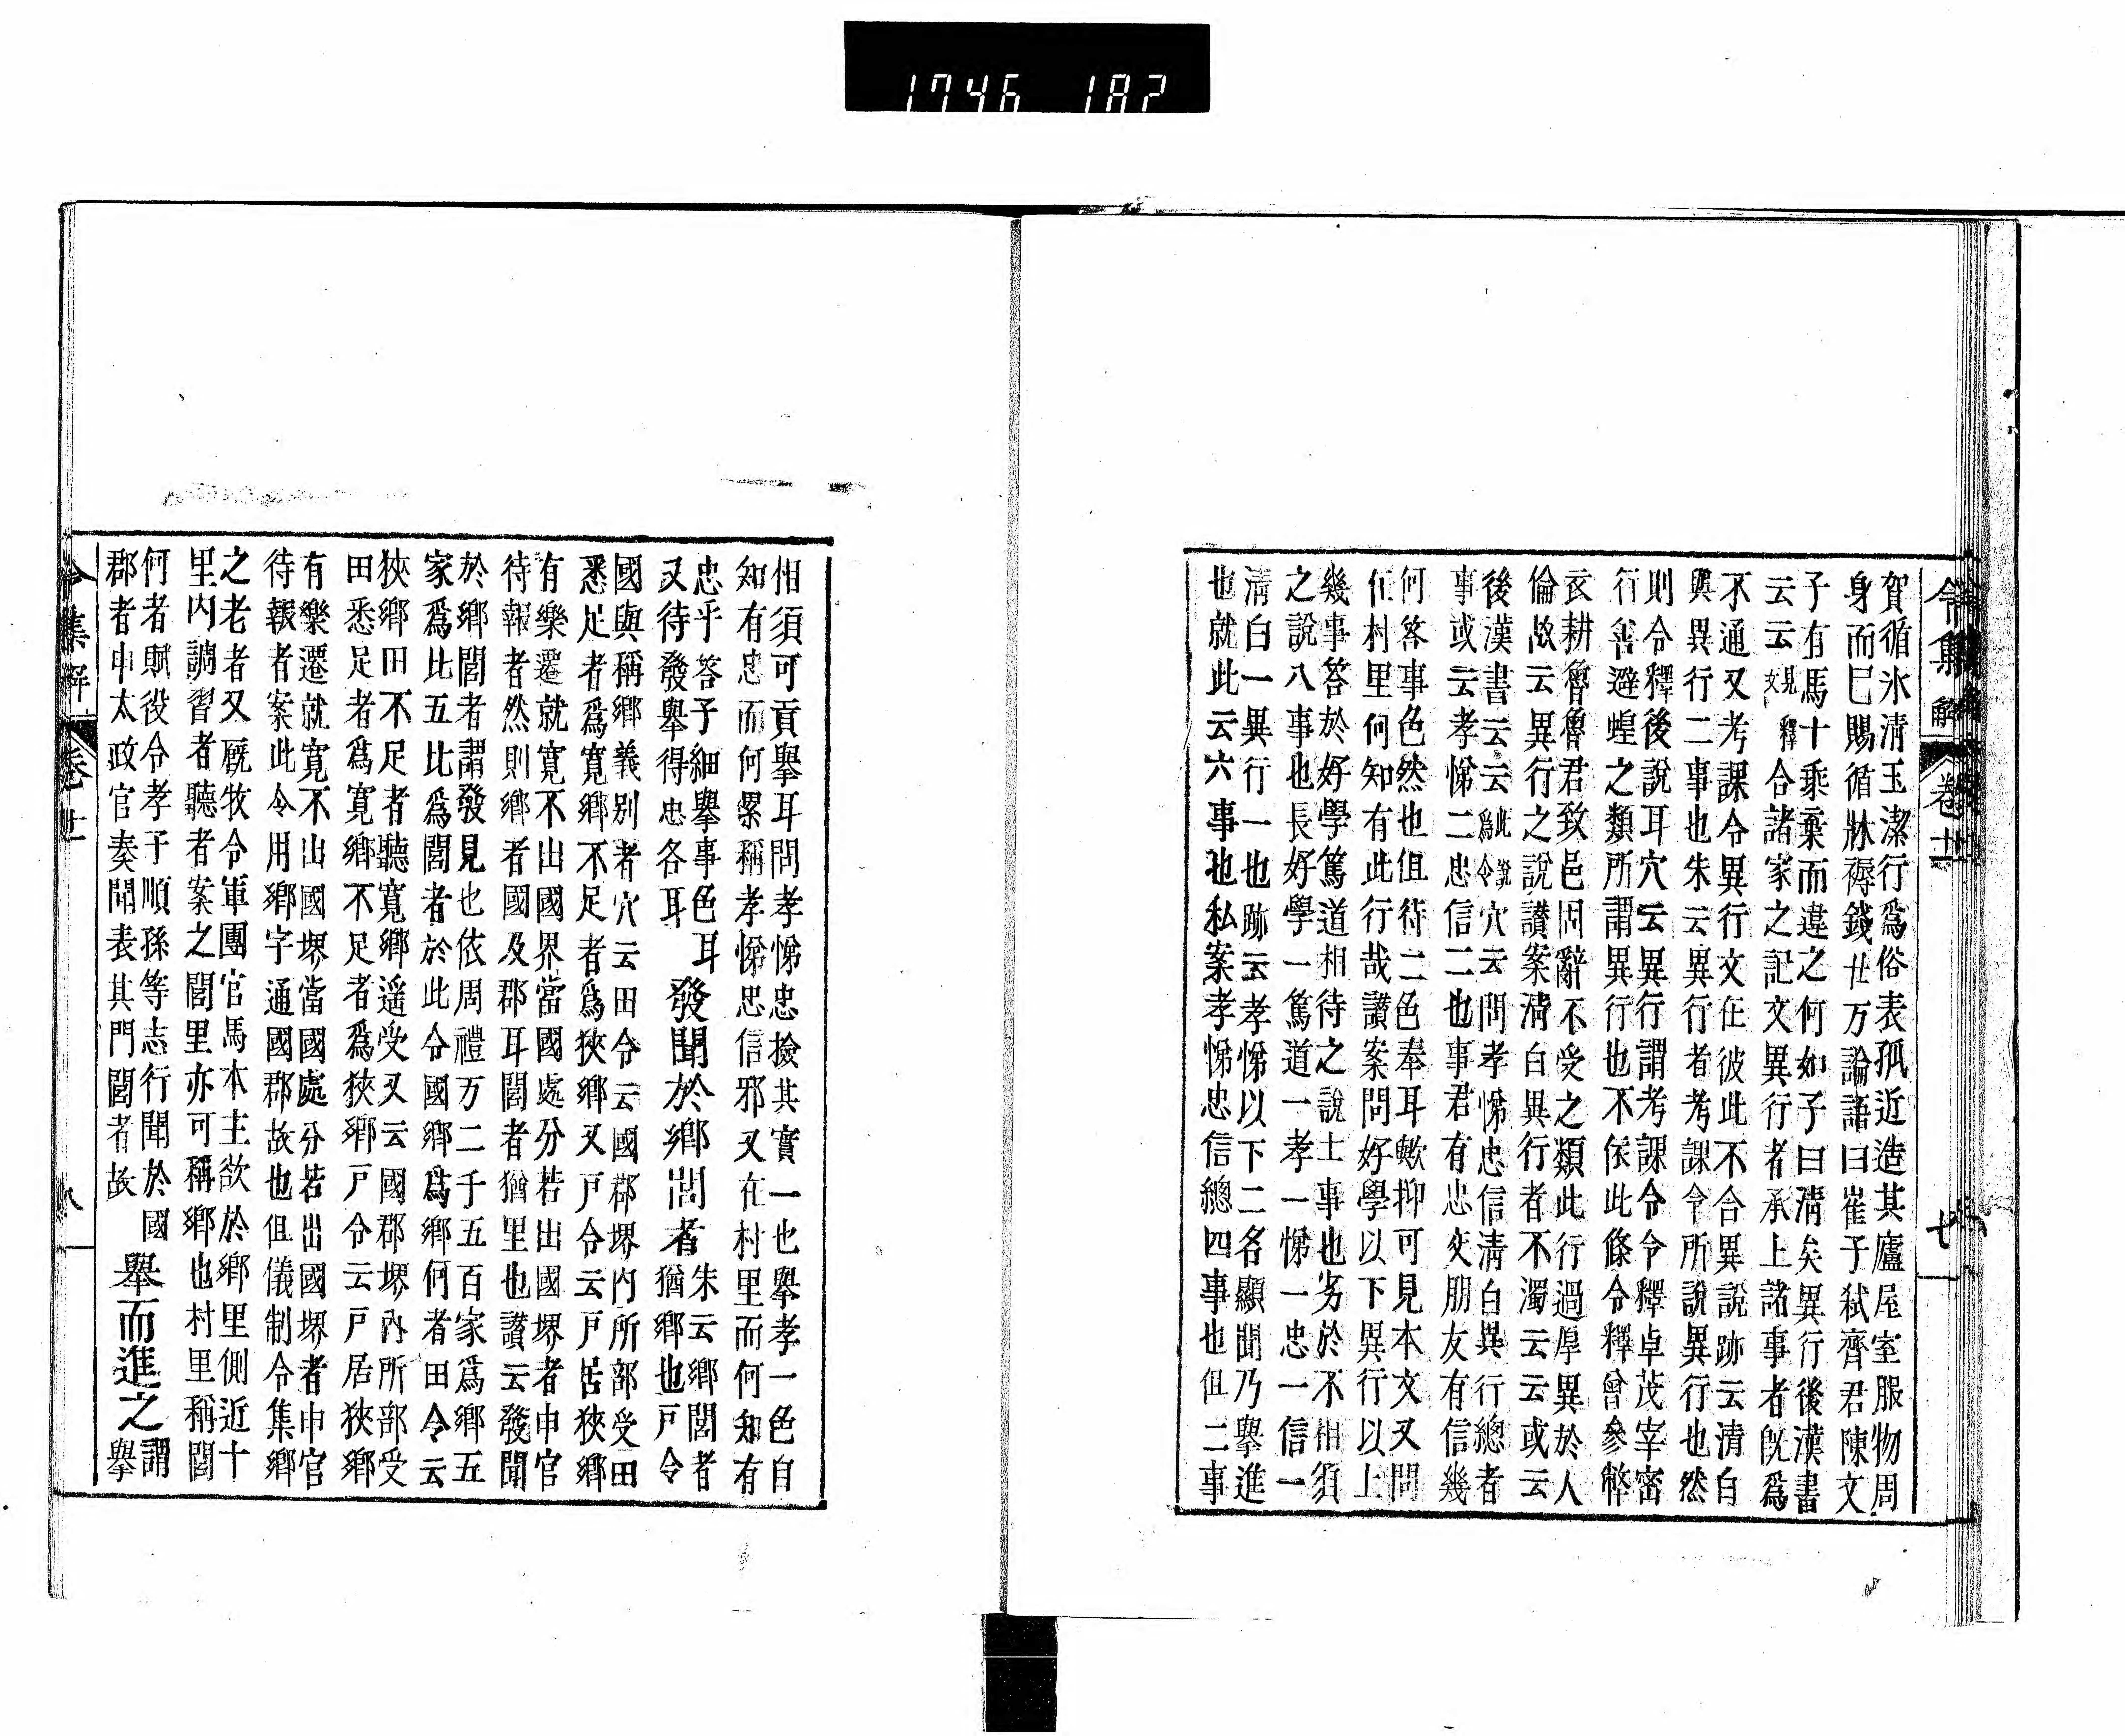 1746 182
令集解 卷廿一 七
賀循氷淸玉潔行爲俗表孤近造其廬屋室服物周
身而已賜循牀褥錢廿万論語曰崔子弑齊君陳文
子有馬十乘棄而違之何如子曰淸矣異行後漢書
云云見文釋合諸家之記文異行者承上諸事者旣爲
不通又考課令異行文在彼此不合異說跡云淸白
與異行二事也朱云異行者考課令所說異行也然
則令釋後說耳穴云異行謂考課令令釋卓茂宰密
行善避蝗之類所謂異行也不依此條令釋曾參弊
衣耕魯魯君致邑固辭不受之類此行過厚異於人
倫故云異行之說讃案淸白異行者不濁云云或云
後漢書云云此說爲令穴云問孝悌忠信淸白異行總者
事或云孝悌二忠信二也事君有忠交朋友有信幾
何答事色然也但待二色奉耳歟抑可見本文又問
在村里何知有此行哉讃案問好學以下異行以上
幾事答於好學篤道相待之說士事也劣於不相須
之說八事也長好學一篤道一孝一悌一忠一信一
淸白一異行一也跡云孝悌以下二名顯聞乃擧進
也就此云六事也私案孝悌忠信總四事也但二事
相須可貢擧耳問孝悌忠撿其實一也擧孝一色自
知有忠而何累稱孝悌忠信邪又在村里而何知有
忠乎答子細擧事色耳發聞於鄕閭者朱云鄕閭者
又待發擧得忠各耳猶鄕也戶令
國與稱鄕義別者穴云田令云國郡堺內所部受田
悉足者爲寬鄕不足者爲狹鄕又戶令云戶居狹鄕
有樂遷就寬不出國界當國處分若出國堺者申官
待報者然則鄕者國及郡耳閭者猶里也讃云發聞
於鄕閭者謂發見也依周禮万二千五百家爲鄕五
家爲比五比爲閭者於此令國鄕爲鄕何者田令云
狹鄕田不足者聽寬鄕遥受又云國郡堺內所部受
田悉足者爲寬鄕不足者爲狹鄕戶令云戶居狹鄕
有樂遷就寬不出國堺當國處分若出國堺者申官
待報者案此令用鄕字通國郡故也但儀制令集鄕
之老者又厩牧令軍團官馬本主欲於鄕里側近十
里內調習者聽者案之閭里亦可稱鄕也村里稱閭
何者賦役令孝子順孫等志行聞於國擧而進之謂
郡者申太政官奏聞表其門閭者故擧
令集解 卷廿一 八